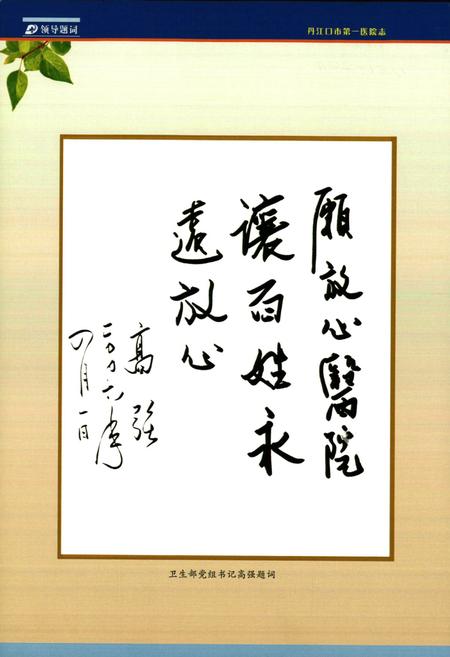 领导题词
丹江口市第一医院志
願放心醫院
讓百姓永
遠放心
高强
二〇〇六年
四月一日
卫生部党组书记高强题词